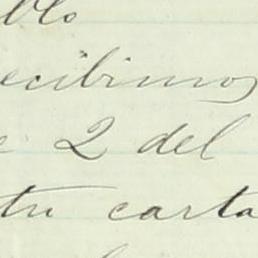 blo
ecibimos
e 2 del
tu carta